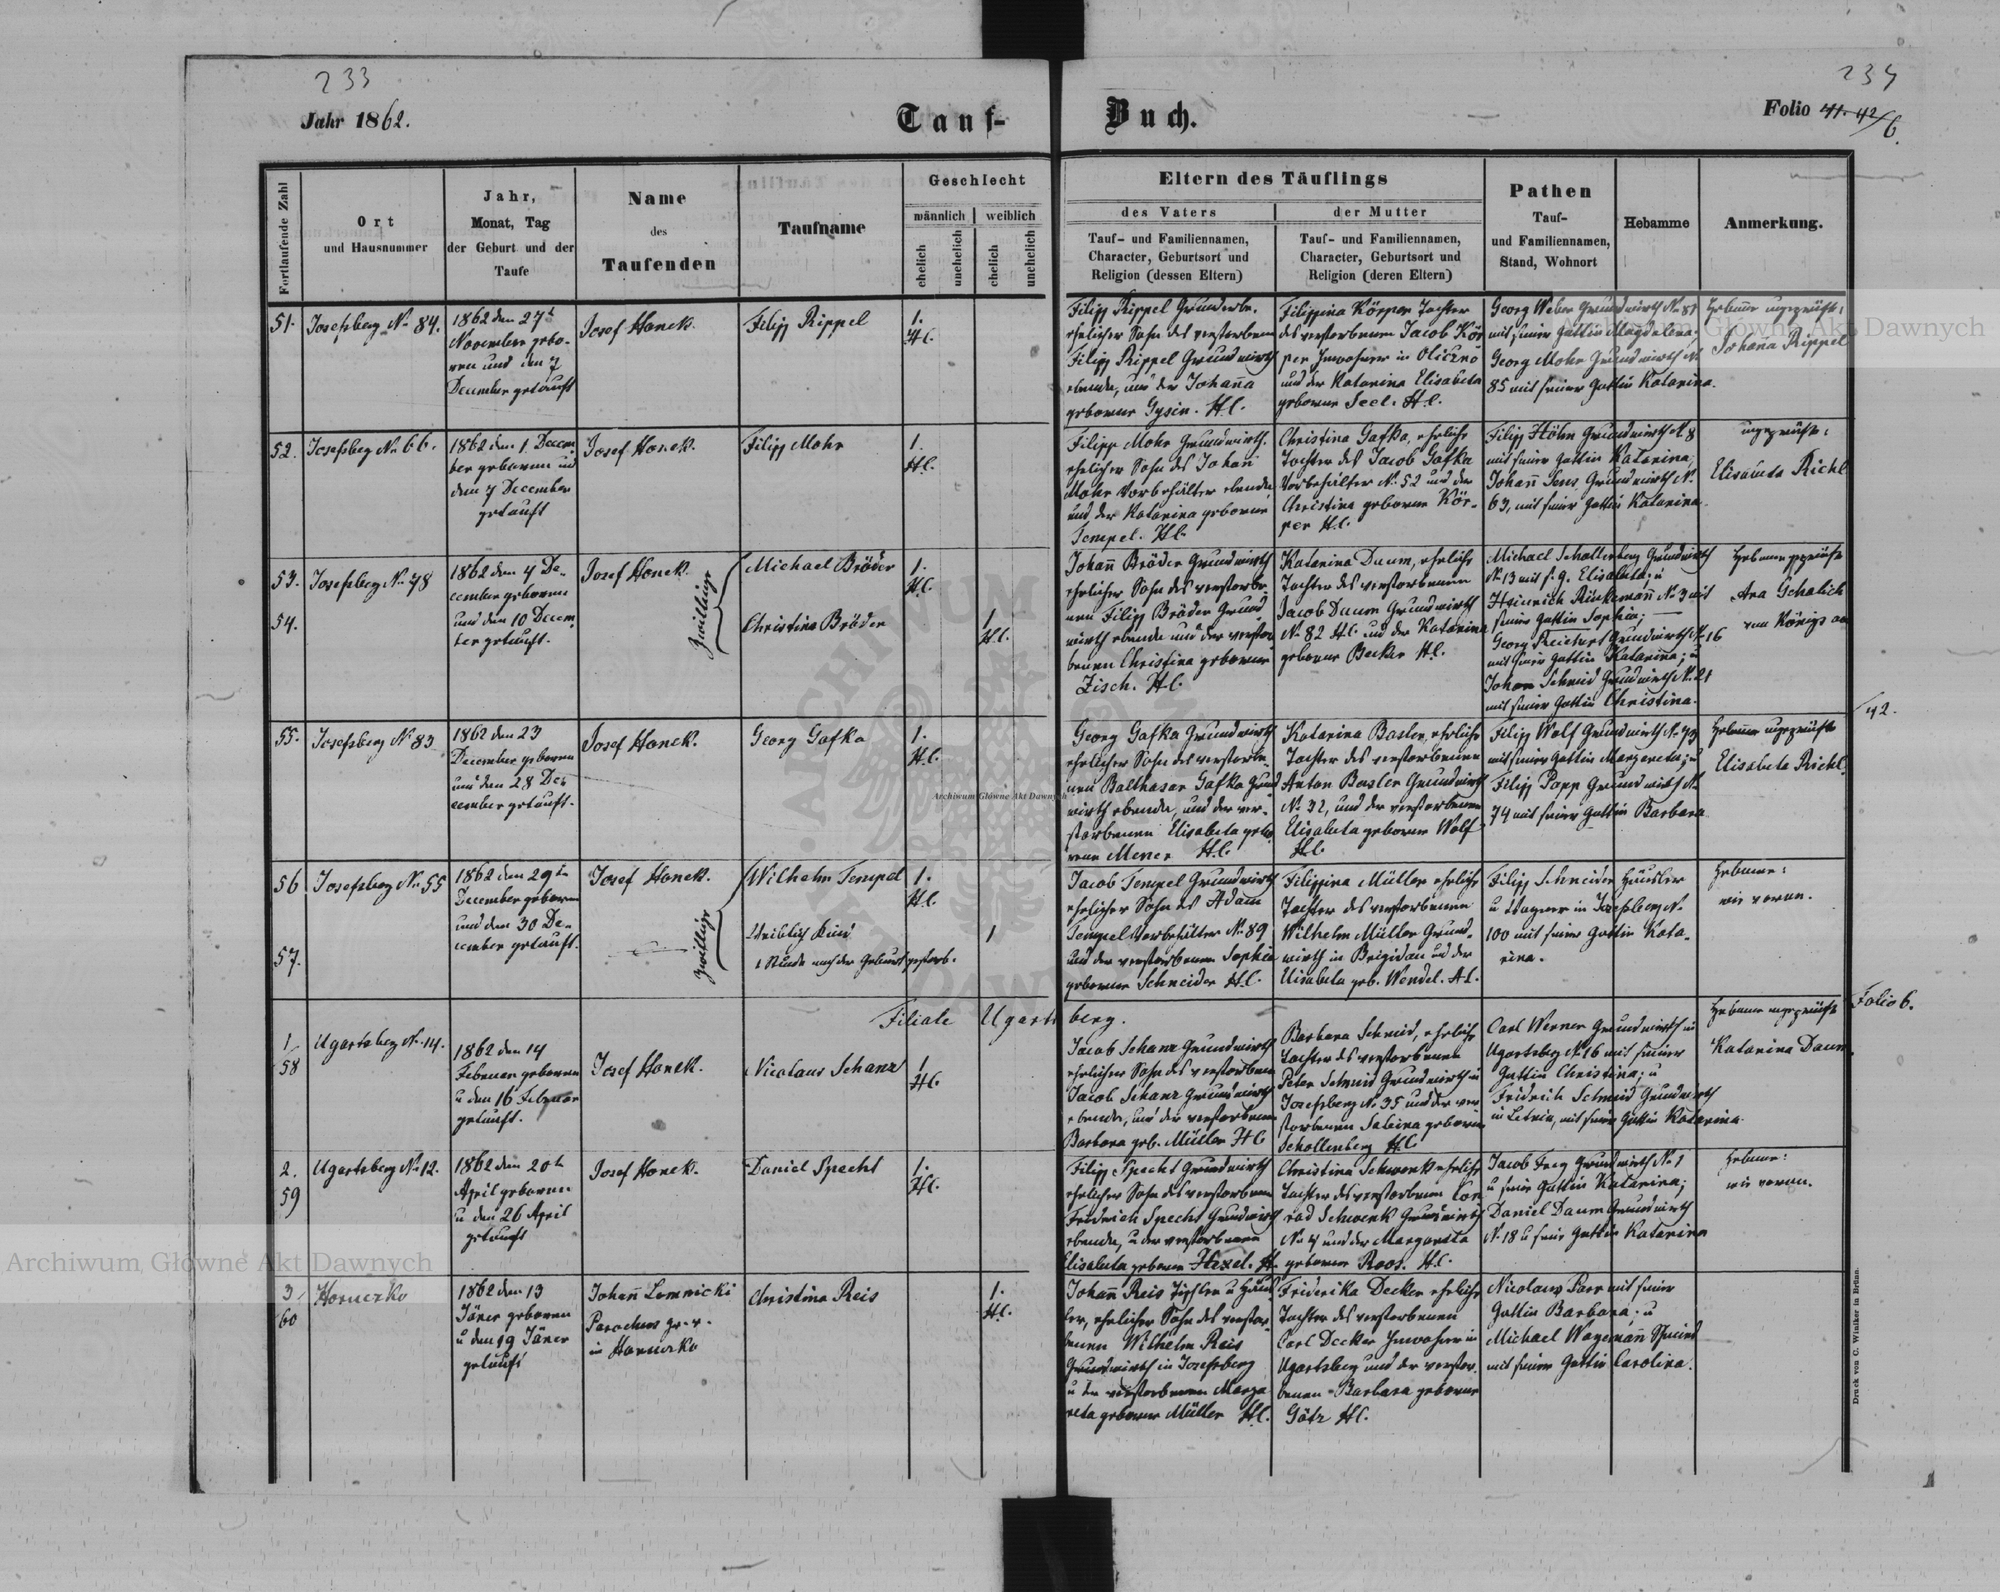 233
234
Jahr 1862.
Tauf-
Buch.
Folio 41. 42/6.
Fortlaufende Zahl
Ort
und Hausnummer
Jahr,
Monat, Tag
der Geburt und der
Taufe
Name
des
Taufenden
Taufname
Geschlecht
männlich
weiblich
ehelich
unehelich
ehelich
unehelich
Eltern des Täuflings
des Vaters
der Mutter
Tauf- und Familiennamen,
Character, Geburtsort und
Religion (dessen Eltern)
Tauf- und Familiennamen,
Character, Geburtsort und
Religion (deren Eltern)
Pathen
Tauf-
und Familiennamen,
Stand, Wohnort
Hebamme
Anmerkung.
51.
Josefsberg No 84.
1862 den 27t
November gebo-
ren und den 7
December getauft
Josef Honek.
Filipp Rippel
1.
H.C.
Filipp Rippel Grundwirth
ehelicher Sohn des verstorbenen
Filipp Rippel Grundwirth
ebenda, und der Johanna
geborne Gysin. H.C.
Filippina Körper Tochter
des verstorbenen Jacob Kör
per Inwohner in
und der Katarina Elisabeta
geborne Seel. H.C.
Georg Weber Grundwirth No 87
mit seiner Gattin Magdalena;
Georg Mohr Grundwirth No
85 mit seiner Gattin Katarina.
Hebamme ungeprüfte:
Johanna Rippel
52.
Josefsberg No 66.
1862 den 1. Decem-
ber geboren und
den 7 December
getauft
Josef Honek.
Filipp Mohr
1.
H.C.
Filipp Mohr Grundwirth
ehelicher Sohn des Johann
Mohr Vorbehälter ebenda
und der Katarina geborne
Tempel. H.C.
Christina Gafka, eheliche
Tochter des Jacob Gafka
Vorbehälter No 52 und der
Christina geborne Kör-
per H.C.
Filipp Höhn Grundwirth No 8
mit seiner Gattin Katarina;
Johann Sens Grundwirth No
63, mit seiner Gattin Katarina.
ungeprüfte:
Elisabeta Richl
53.
54.
Josefsberg No 78
1862 den 4 De-
cember geboren
und den 10 Decem-
ber getauft.
Josef Honek.
Zwillinge
Michael Bröder
Christina Bröder
1.
H.C.
1
H.C.
Johann Bröder Grundwirth
ehelicher Sohn des verstorbe-
nen Filipp Bröder Grund-
wirth ebenda und der verstor-
benen Christina geborne
Zisch. H.C.
Katarina Daum, eheliche
Tochter des verstorbenen
Jacob Daum Grundwirth
No 82 H.C. und der Katarina
geborne Becker H.C.
Michael Schollenberg Grundwirth
No 13 mit s. g. Elisabeta; u
Heinrich Rinkemann No 3 mit
seiner Gattin Sophia;
Georg Grundwirth No 16
mit seiner Gattin Katarina; u
Johann Schmid Grundwirth No 21
mit seiner Gattin Christina.
Hebamme geprüfte
Ana Schalich
von Königsau
55.
Josefsberg No 83
1862 den 23
December geboren
und den 28 De-
cember getauft.
Josef Honek.
Georg Gafka
1.
H.C.
Georg Gafka Grundwirth
ehelicher Sohn des verstorbe-
nen Balthasar Gafka Grund
wirth ebenda, und der ver-
storbenen Elisabeta gebo-
rene Mener H.C.
Katarina Basler, eheliche
Tochter des verstorbenen
Anton Basler Grundwirth
No 32, und der verstorbenen
Elisabeta geborne Wolf
H.C.
Filipp Wolf Grundwirth No 43
mit seiner Gattin Margareta; u
Filipp Popp Grundwirth No
74 mit seiner Gattin Barbara
Hebamme ungeprüfte
Elisabeta Richl.
42.
56
57.
Josefsberg No 55
1862 den 29t
December geboren
und den 30 De-
cember getauft.
Josef Honek.
Zwillinge
Wilhelm Tempel
Weiblich Kind
1 Stunde nach der Geburt gestorb.
1.
H.C.
1
Jacob Tempel Grundwirth
ehelicher Sohn des Adam
Tempel Vorbehälter No 89
und der verstorbenen Sophia
geborne Schneider H.C.
Filippina Müller eheliche
Tochter des verstorbenen
Wilhelm Müller Grund-
wirth in Brigidau und der
Elisabeta geb. Wendel. H.C.
Filipp Schneider Häusler
u Wagner in Josefsberg No
100 mit seiner Gattin Kata-
rina.
Hebamme:
wie voran.
Filiale Ugartsberg.
Folio 6.
1/58
Ugartsberg No 14.
1862 den 14
Februar geboren
u den 16 Februar
getauft.
Josef Honek.
Nicolaus Schanz
1.
H.C.
Jacob Schanz Grundwirth
ehelicher Sohn des verstorbenen
Jacob Schanz Grundwirth
ebenda, und der verstorbenen
Barbara geb. Müller H.C.
Barbara Schmid, eheliche
Tochter des verstorbenen
Peter Schmid Grundwirth in
Josefsberg No 35 und der ver
storbenen Sabina geborne
Schollenberg H.C.
Carl Werner Grundwirth in
Ugartsberg No 16 mit seiner
Gattin Christina; u
Fridrich Schmid Grundwirth
in Letnia, mit seiner Gattin Katarina.
Hebamme ungeprüfte
Katarina Daum.
2.
59
Ugartsberg No 12.
1862 den 20t
April geboren
u den 26 April
getauft
Josef Honek.
Daniel Specht
1.
H.C.
Filipp Specht Grundwirth
ehelicher Sohn des verstorbenen
Fridrich Specht Grundwirth
ebenda, u der verstorbenen
Elisabeta geboren Hexel. H.
Christina Schwenk eheliche
Tochter des verstorbenen Con
rad Schwenk Grundwirth
No 4 und der Margareta
geborne Roos. H.C.
Jacob Freg Grundwirth No 1
u seine Gattin Katarina;
Daniel Daum Grundwirth
No 18 u seine Gattin Katarina
Hebamme:
wie voran.
3/60
Horucko
1862 den 13
Jäner geboren
u den 19 Jäner
getauft
Johann Lomnicki
Parochus gr. r.
in Horucko
Christina Reis
1.
H.C.
Johann Reis Tischler u Häus
ler, ehelicher Sohn des verstor-
benen Wilhelm Reis
Grundwirth in Josefsberg
u der verstorbenen Marga
reta geborne Müller H.C.
Friderika Decker eheliche
Tochter des verstorbenen
Carl Decker Inwohner in
Ugartsberg und der verstor-
benen Barbara geborne
Götz H.C.
Nicolaus Parr mit seiner
Gattin Barbara; u
Michael Wagemann Schmied
mit seiner Gattin Carolina.
Druck von C. Winiker in Brünn.
Archiwum Główne Akt Dawnych
Archiwum Główne Akt Dawnych
Archiwum Główne Akt Dawnych